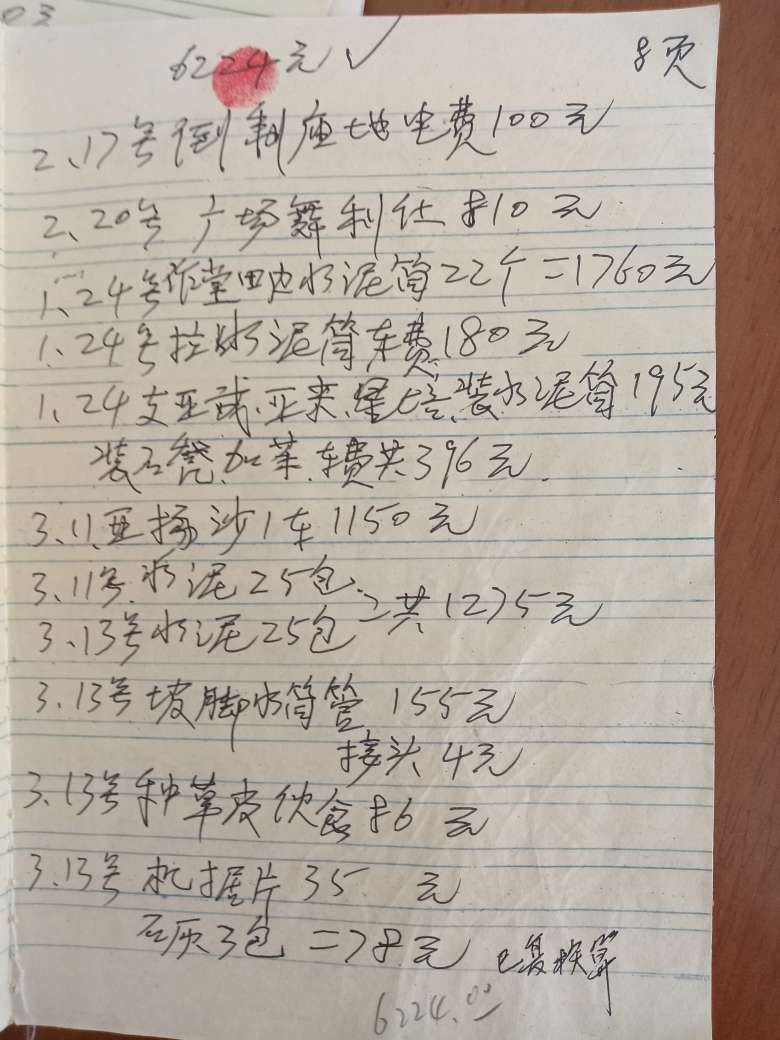 03
6224元√
8页
2、17号 剩座地电费100元
2、20号 广场舞利仕 810元
1、24号作堂田边水泥筒22个=1760元
1、24号拉水泥筒车费180元
1、24支亚武、亚来、装水泥筒195元
装石凳、加菜、车费共396元.
3.11.亚扬沙1车1150元
3、11号水泥25包
3、13号水泥25包 =共1275元
3.13号坡脚水筒管 155元
接头4元
3.13号种草皮饮食86元
3.13号机据片35 元
石灰3包=78元
已复核算
6224.00